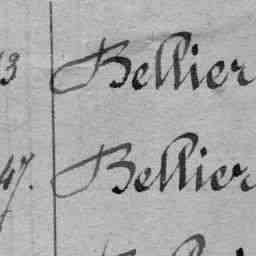 3 Bellier
47. Bellier